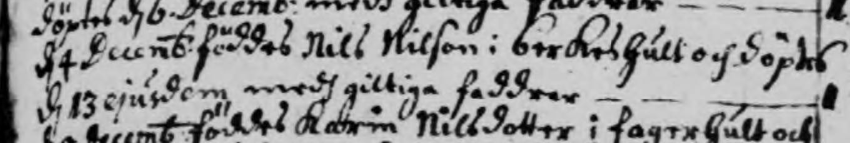 döptes dÿ 6 Decemb: medh giltiga faddrar
dÿ 4 Decemb: föddes Nils Nilson i berkeshult och döptes
dÿ 13 ejusdem medh giltiga faddrar
Decemb föddes Karin Nilsdotter i fagerhult och